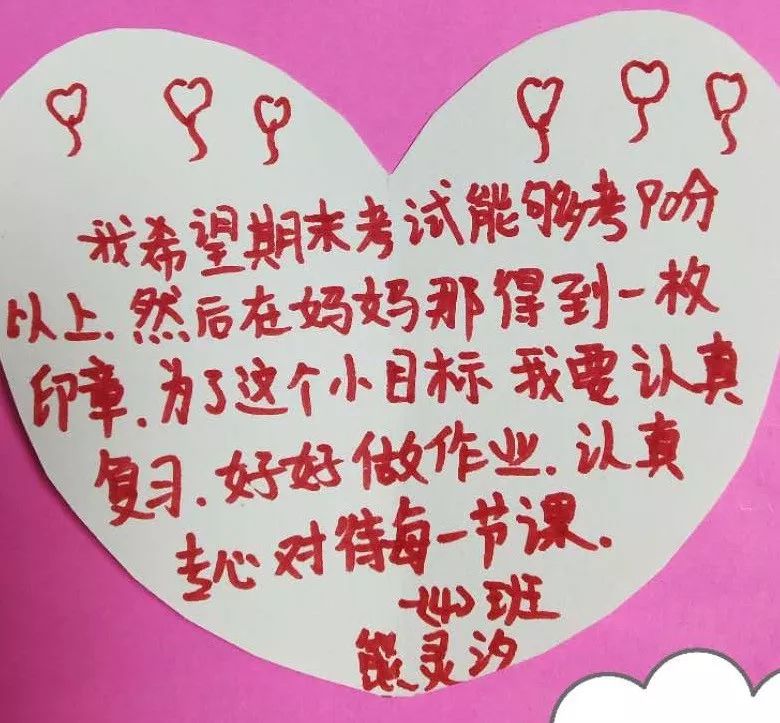 我希望期末考试能够考90分
以上.然后在妈妈那得到一枚
印章.为了这个小目标 我要认真
复习.好好做作业.认真
专心对待每一节课.
一(4)班
熊灵汐